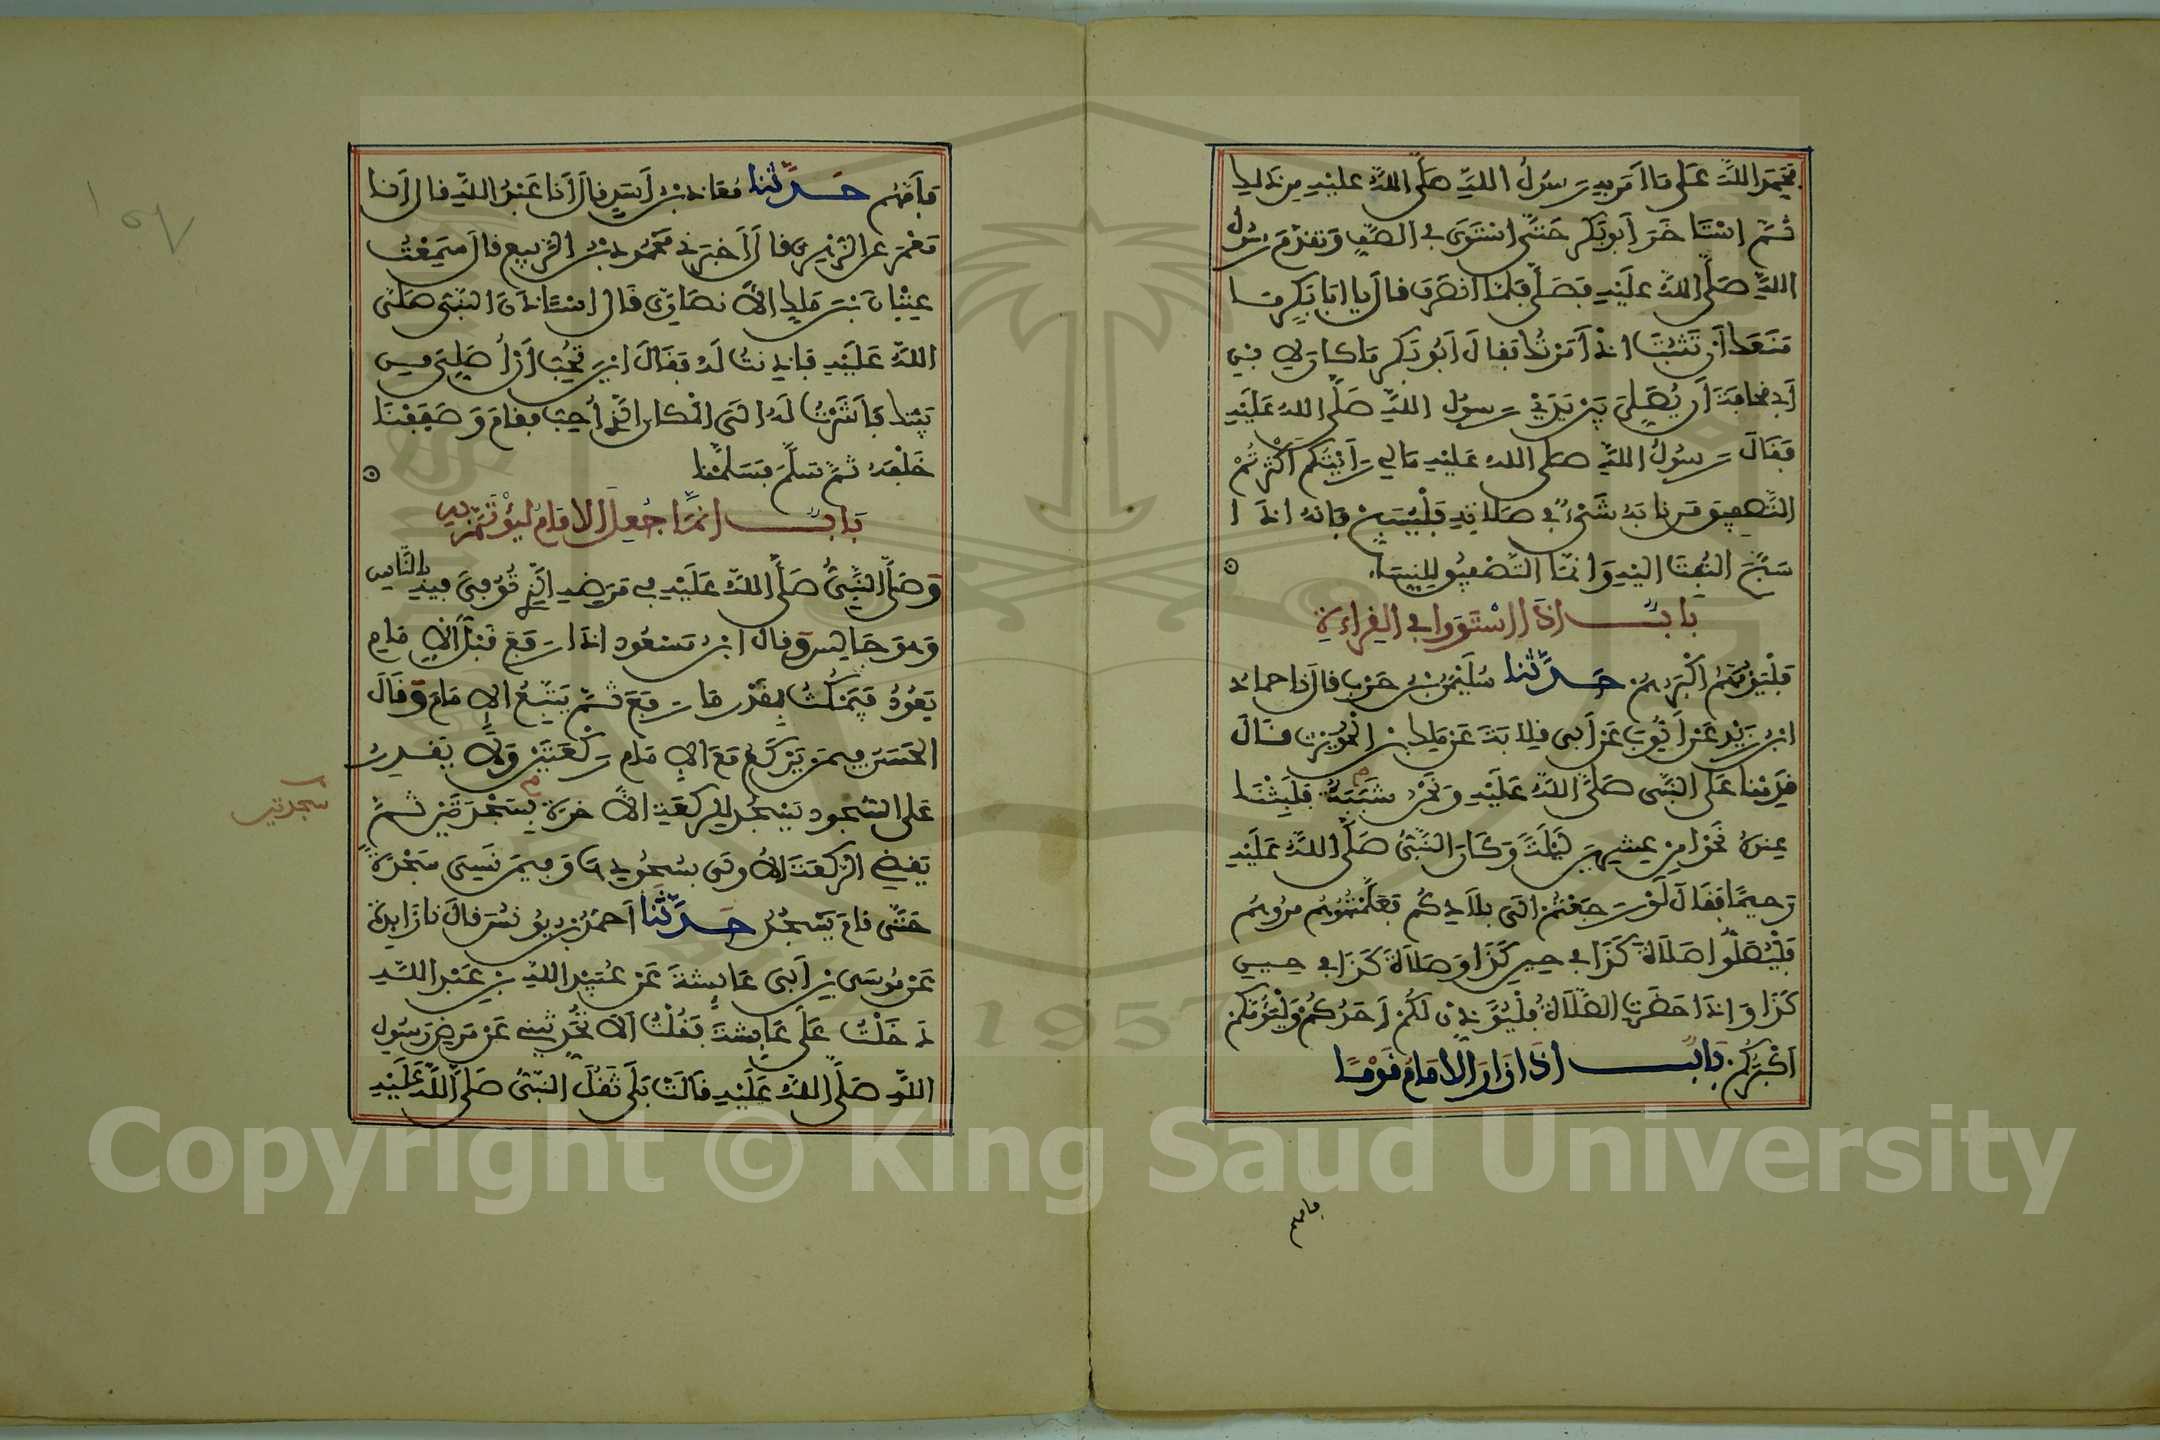 فحمد الله على ما امر به رسول الله صلى الله عليه من ذلك
ثم استاخر ابو بكر حتى استوى في الصف وتقدم رسول
الله صلى الله عليه فصلى فلما انصرف قال يا ابا بكر ما
منعك ان تثبت اذ امرتك فقال ابو بكر ما كان لابن
ابي قحافة ان يصلي بين يدي رسول الله صلى الله عليه
فقال رسول الله صلى الله عليه مالي رايتكم اكثرتم
التصفيق من نابه شيء في صلاته فليسبح فانه اذا
سبح التفت اليه وانما التصفيق للنساء
باب اذا استووا في القراءة
فليؤمهم اكبرهم حدثنا سليمن بن حرب قال نا حماد
ابن زيد عن ايوب عن ابي قلابة عن ملك بن الحويرث قال
قدمنا على النبي صلى الله عليه ونحن شببة فلبثنا
عنده نحوا من عشرين ليلة وكان النبي صلى الله عليه
رحيما فقال لو رجعتم الى بلادكم فعلمتموهم مروهم
فليصلوا صلاة كذا في حين كذا وصلاة كذا في حين
كذا واذا حضرت الصلاة فليؤذن لكم احدكم وليؤمكم
اكبركم باب اذا زار الامام قوما
فامهم
فامهم حدثنا معاذ بن اسد قال انا عبد الله قال انا
معمر عن الزهري قال اخبرني محمود بن الربيع قال سمعت
عتبان بن ملك الانصاري قال استاذن النبي صلى
الله عليه فاذنت له فقال اين تحب ان اصلي من
بيتك فاشرت له الى المكان الذي احب فقام وصففنا
خلفه ثم سلم فسلمنا
باب انما جعل الامام ليؤتم به
وصلى النبي صلى الله عليه في مرضه الذي توفي فيه بالناس
وهو جالس وقال ابن مسعود اذا رفع قبل الامام
يعود فيمكث بقدر ما رفع ثم يتبع الامام وقال
الحسن فيمن يركع مع الامام ركعتين ولا يقدر
على السجود يسجد للركعة الاخرة سجدتين ثم
سجدتين
يقضي الركعة الاولى بسجودها وفيمن نسي سجدة
حتى قام يسجد حدثنا احمد بن يونس قال نا زايدة
عن موسى بن ابي عايشة عن عبيد الله بن عبد الله
دخلت على عايشة فقلت الا تحدثيني عن مرض رسول
الله صلى الله عليه قالت بلى ثقل النبي صلى الله عليه
Copyright © King Saud University
1957